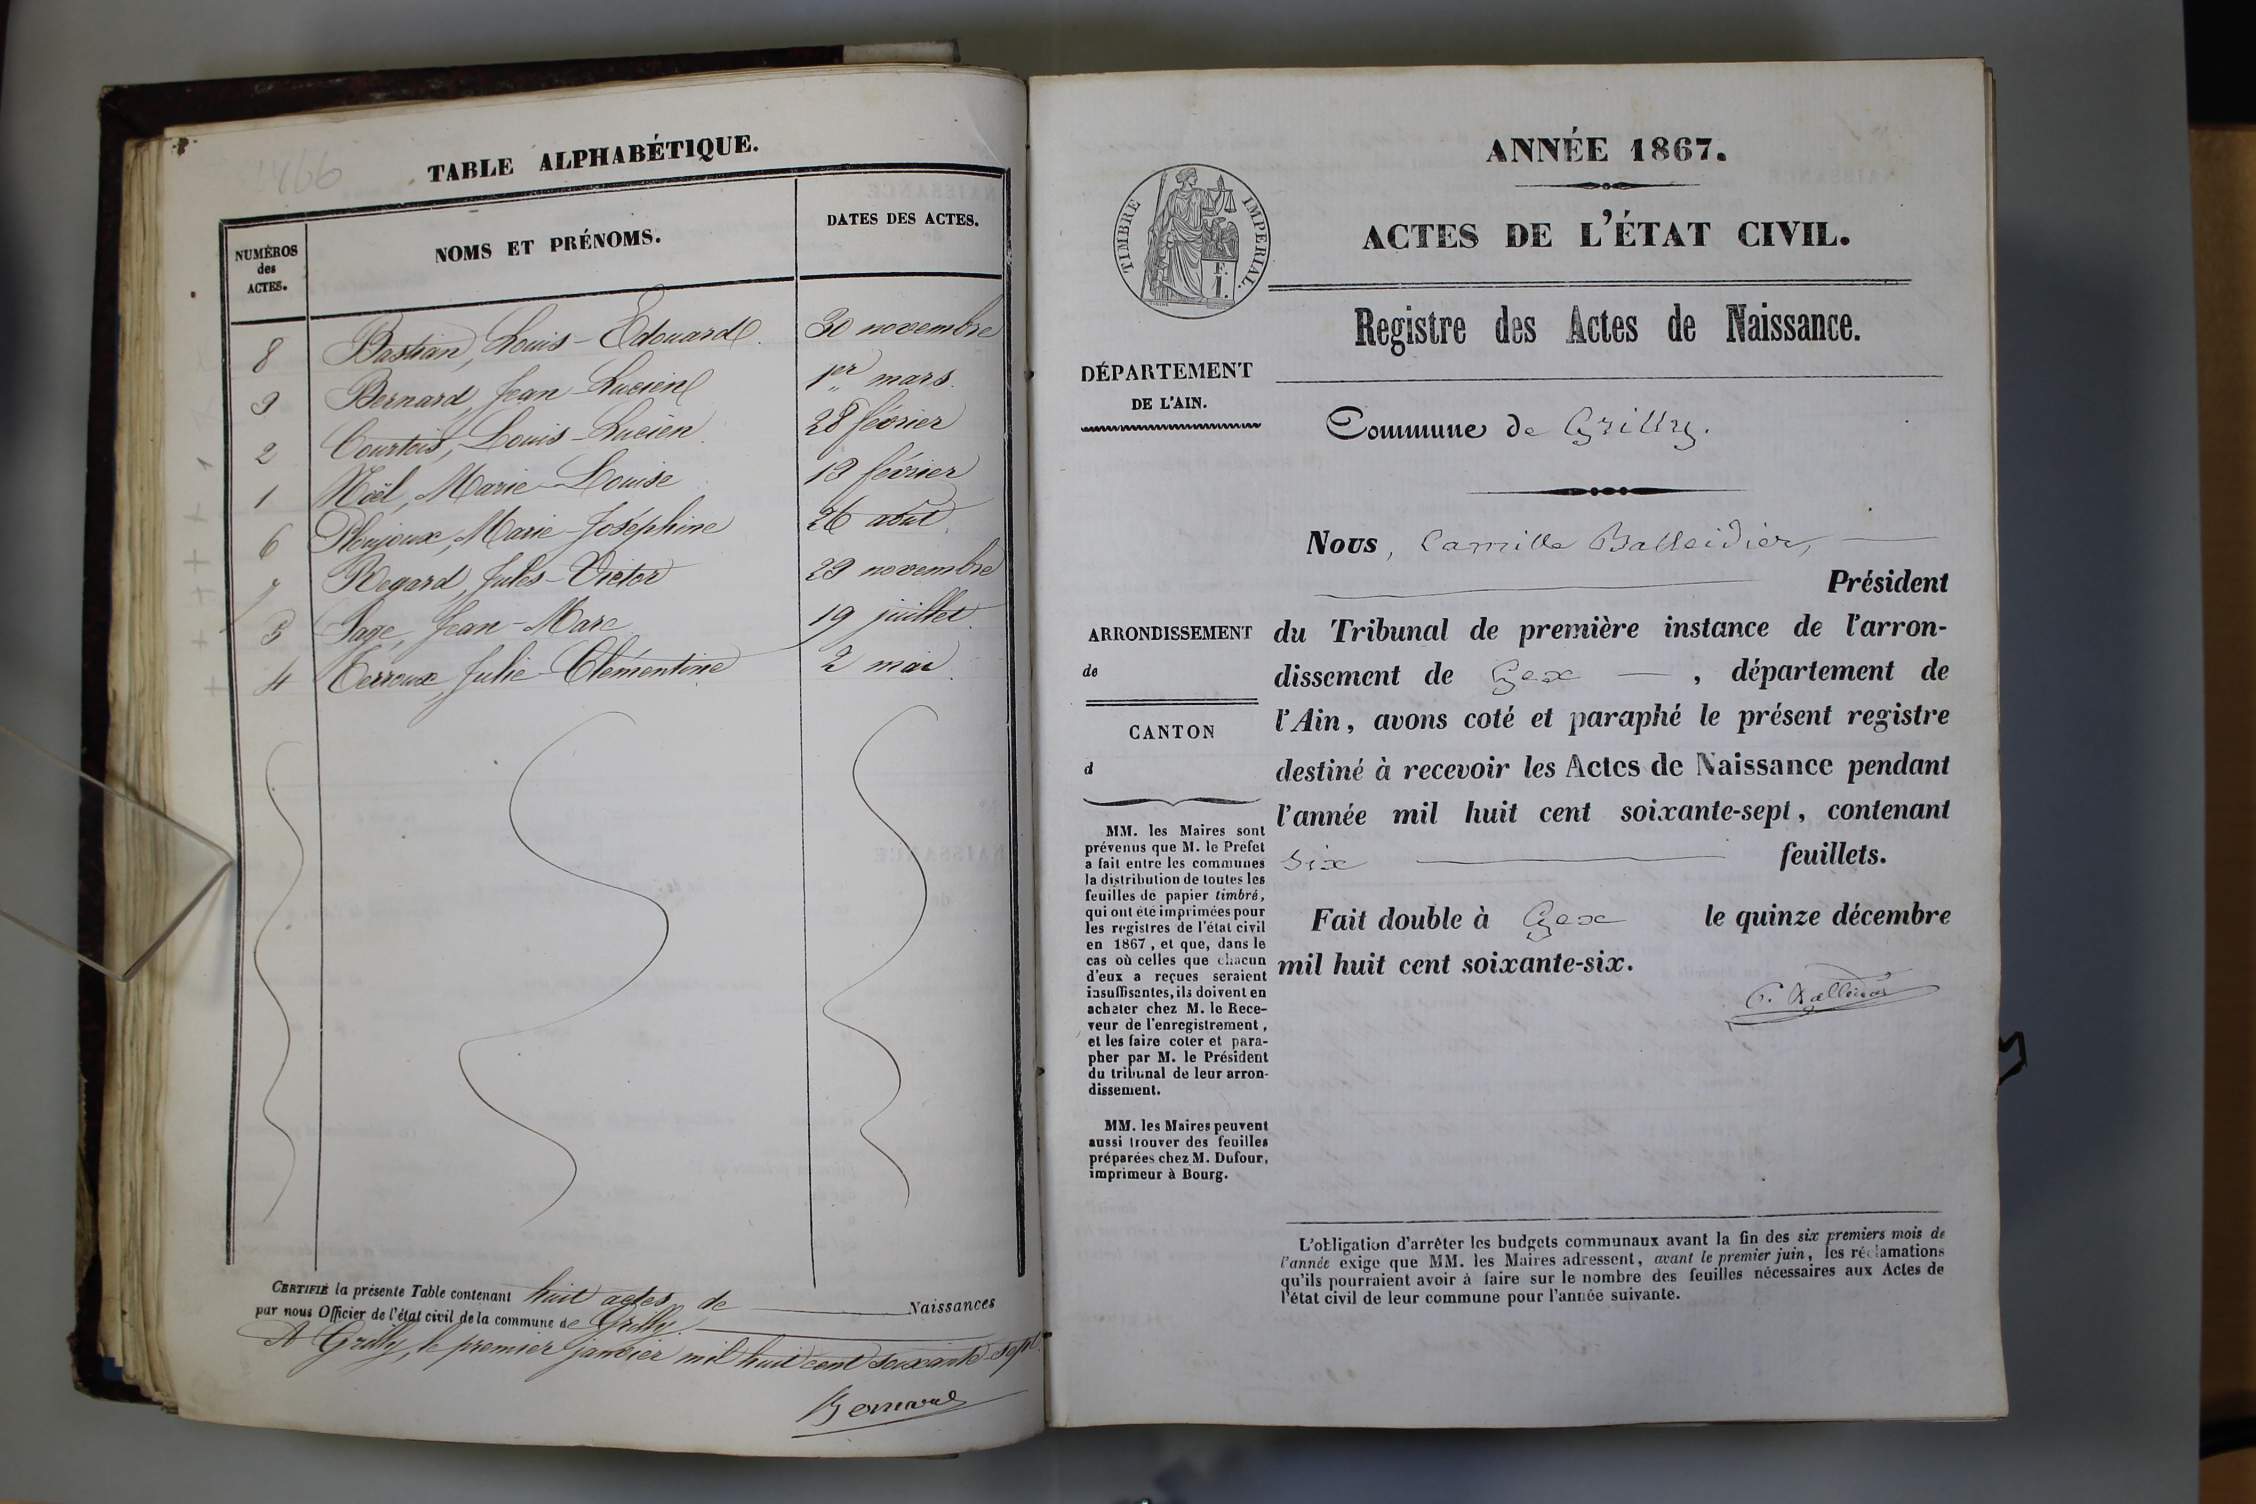 1866
TABLE ALPHABÉTIQUE.
NUMÉROS
des
ACTES.
NOMS ET PRÉNOMS.
DATES DES ACTES.
8 Bastian, Louis-Edouard. 30 novembre
3 Bernard, Jean Lucien 1er mars.
2 Courtois, Louis-Lucien. 28 février
1 Noël, Marie-Louise 13 février
6 Marie-Joséphine 26 août.
7 Regard, Jules-Victor 29 novembre
5 Sage, Jean-Marc 19 juillet.
4 Terroux, Julie-Clémentine 2 mai.
CERTIFIÉ la présente Table contenant huit actes de Naissances
par nous Officier de l'état civil de la commune de Grilly.
A Grilly, le premier janvier mil huit cent soixante-sept.
Bernard
ANNÉE 1867.
TIMBRE IMPERIAL.
F.
1.
ACTES DE L'ÉTAT CIVIL.
Registre des Actes de Naissance.
DÉPARTEMENT
DE L'AIN.
Commune de Grilly.
Nous, Camille Balleidier,
Président
ARRONDISSEMENT
de
CANTON
d
du Tribunal de première instance de l'arron-
dissement de Gex, département de
l'Ain, avons coté et paraphé le présent registre
destiné à recevoir les Actes de Naissance pendant
l'année mil huit cent soixante-sept, contenant
six feuillets.
Fait double à Gex le quinze décembre
mil huit cent soixante-six.
C. Balleidier
MM. les Maires sont
prévenus que M. le Préfet
a fait entre les communes
la distribution de toutes les
feuilles de papier timbré,
qui ont été imprimées pour
les registres de l'état civil
en 1867, et que, dans le
cas où celles que chacun
d'eux a reçues seraient
insuffisantes, ils doivent en
acheter chez M. le Rece-
veur de l'enregistrement,
et les faire coter et para-
pher par M. le Président
du tribunal de leur arron-
dissement.
MM. les Maires peuvent
aussi trouver des feuilles
préparées chez M. Dufour,
imprimeur à Bourg.
L'obligation d'arrêter les budgets communaux avant la fin des six premiers mois de
l'année exige que MM. les Maires adressent, avant le premier juin, les réclamations
qu'ils pourraient avoir à faire sur le nombre des feuilles nécessaires aux Actes de
l'état civil de leur commune pour l'année suivante.